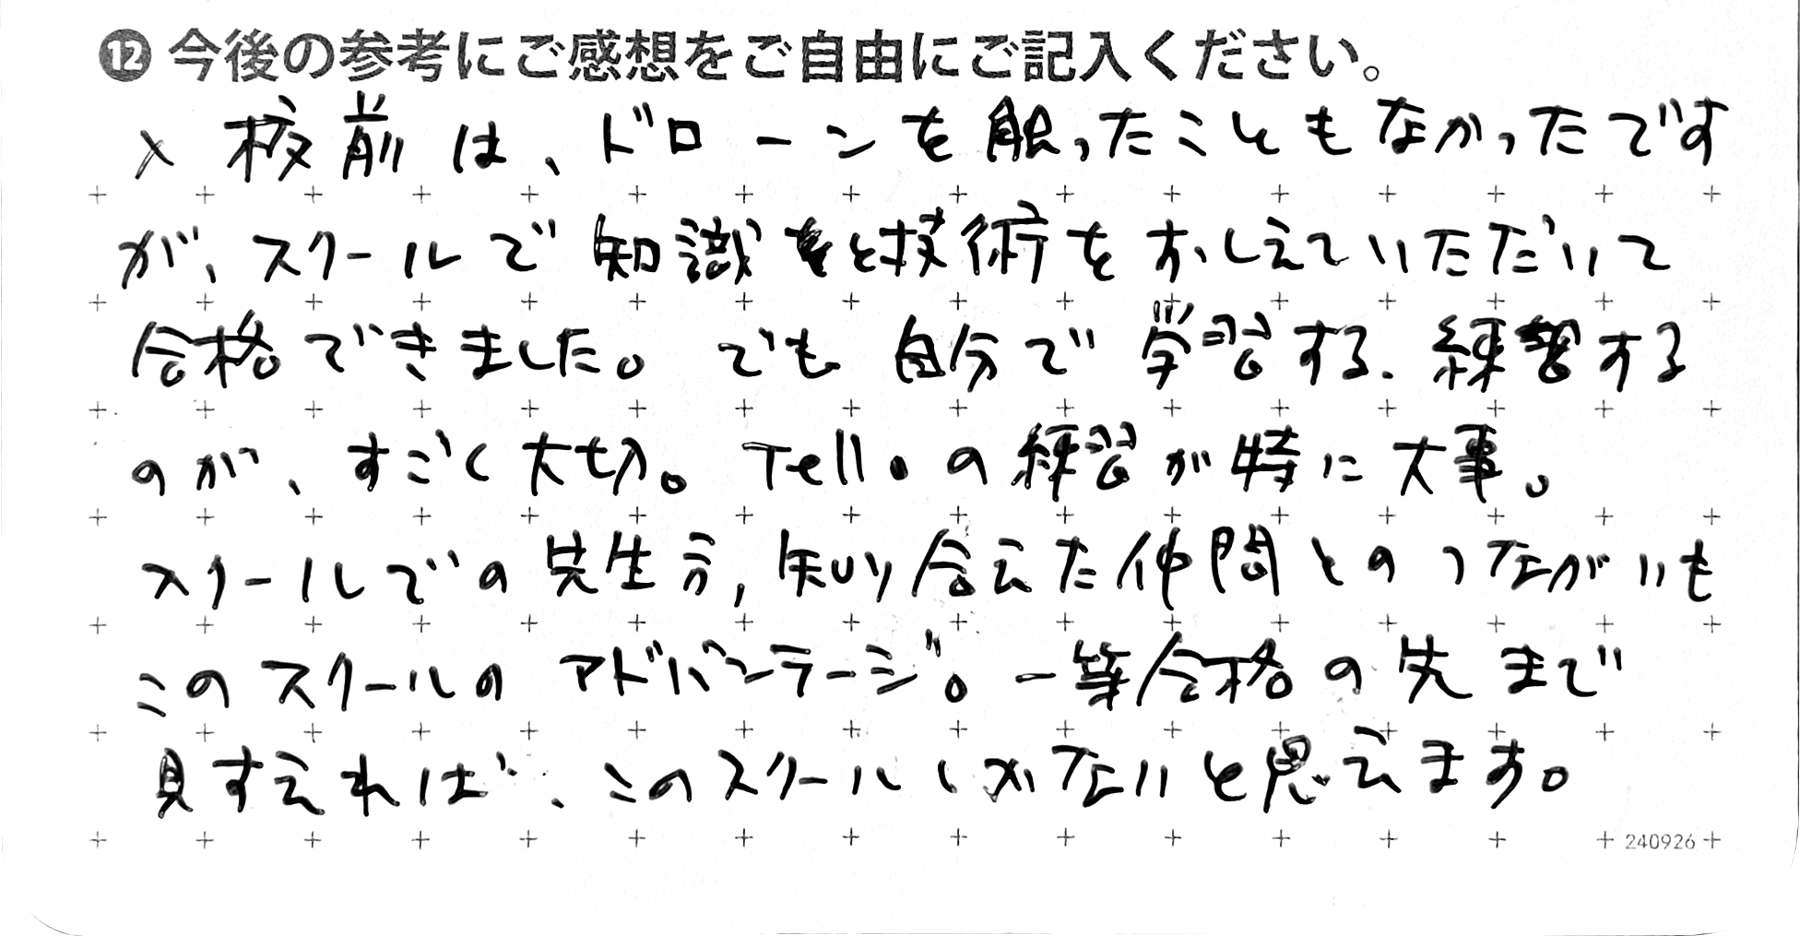 ⓬ 今後の参考にご感想をご自由にご記入ください。
入校前は、ドローンを触ったこともなかったです
が、スクールで知識と技術をおしえていただいて
合格できました。でも自分で学習する、練習する
のが、すごく大切。Telloの練習が特に大事。
スクールでの先生方,知り合えた仲間とのつながりも
このスクールのアドバンテージ。一等合格の先まで
見すえれば、このスクールしかないと思えます。
240926